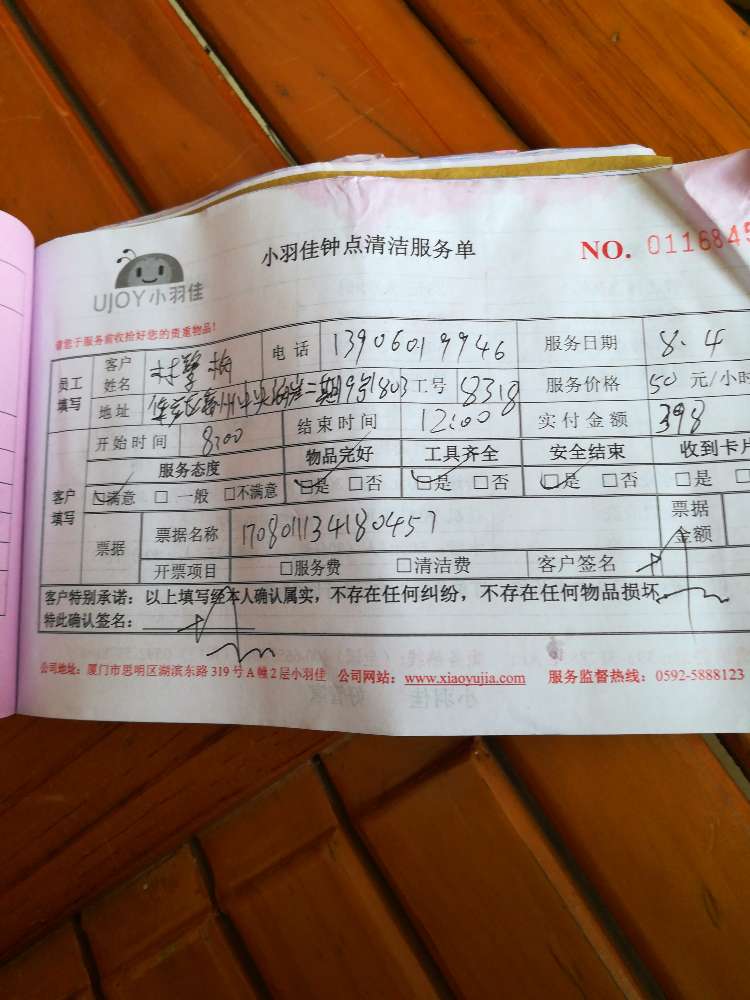 UJOY小羽佳
小羽佳钟点清洁服务单
NO. 0116845
请您于服务前收拾好您的贵重物品!
员工填写 客户姓名 电话 13906019946 服务日期 8.4
地址 二期19号1803 工号 8318 服务价格 50 元/小时
开始时间 8:00 结束时间 12:00 实付金额 398
客户填写 服务态度 物品完好 工具齐全 安全结束 收到卡片
□满意 □一般 □不满意 □是 □否 □是 □否 □是 □否 □是
票据 票据名称 票据金额
开票项目 □服务费 □清洁费 客户签名
客户特别承诺:以上填写经本人确认属实,不存在任何纠纷,不存在任何物品损坏
特此确认签名:
公司地址:厦门市思明区湖滨东路319号A幢2层小羽佳 公司网站:www.xiaoyujia.com 服务监督热线:0592-5888123